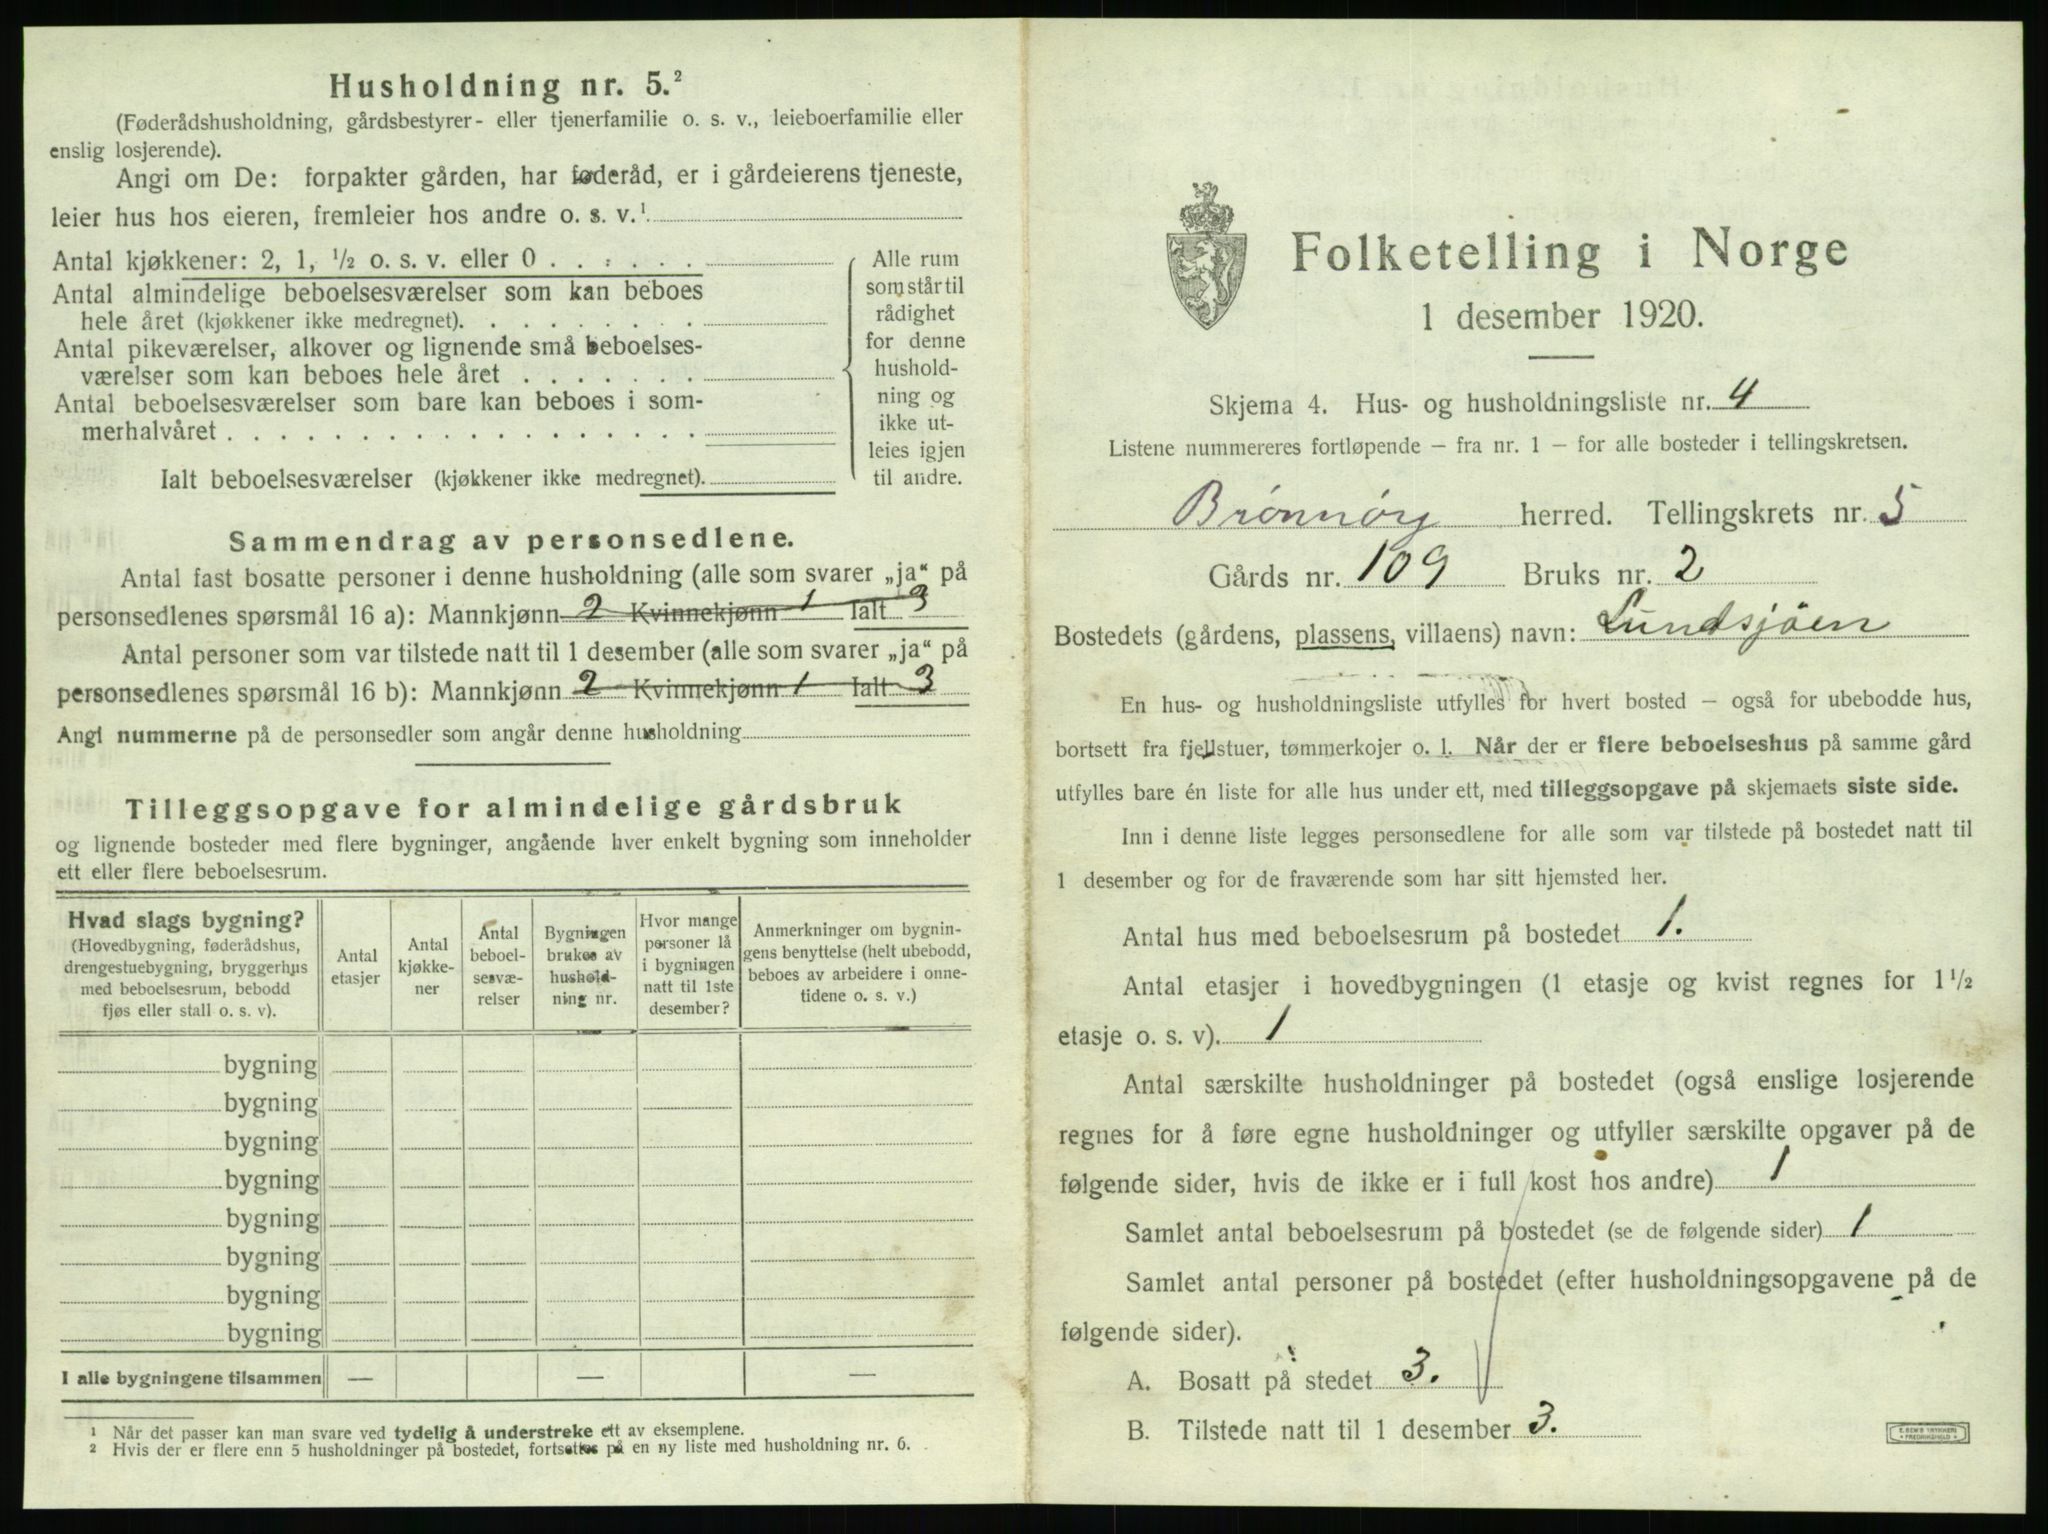 Husholdning nr. 5.²
(Føderådshusholdning, gårdsbestyrer- eller tjenerfamilie o. s. v., leieboerfamilie eller
enslig losjerende).
Angi om De: forpakter gården, har føderåd, er i gårdeierens tjeneste,
leier hus hos eieren, fremleier hos andre o. s. v.¹
Antal kjøkkener: 2, 1, ½ o. s. v. eller 0 . . . . . .
Antal almindelige beboelsesværelser som kan beboes
hele året (kjøkkener ikke medregnet). . . . . . . . .
Antal pikeværelser, alkover og lignende små beboelses-
værelser som kan beboes hele året . . . . . . .
Antal beboelsesværelser som bare kan beboes i som-
merhalvåret . . . . . . . . . . . . . . . . . .
Ialt beboelsesværelser (kjøkkener ikke medregnet).
Alle rum
som står til
rådighet
for denne
hushold-
ning og
ikke ut-
leies igjen
til andre.
Sammendrag av personsedlene.
Antal fast bosatte personer i denne husholdning (alle som svarer „ja“ på
personsedlenes spørsmål 16 a): Mannkjønn 2 Kvinnekjønn 1 Ialt 3
Antal personer som var tilstede natt til 1 desember (alle som svarer „ja“ på
personsedlenes spørsmål 16 b): Mannkjønn 2 Kvinnekjønn 1 Ialt 3
Angi nummerne på de personsedler som angår denne husholdning
Tilleggsopgave for almindelige gårdsbruk
og lignende bosteder med flere bygninger, angående hver enkelt bygning som inneholder
ett eller flere beboelsesrum.
Hvad slags bygning?
(Hovedbygning, føderådshus,
drengestuebygning, bryggerhus
med beboelsesrum, bebodd
fjøs eller stall o. s. v).
Antal
etasjer
Antal
kjøkke-
ner
Antal
beboel-
sesvæ-
relser
Bygningen
brukes av
hushold-
ning nr.
Hvor mange
personer lå
i bygningen
natt til 1ste
desember?
Anmerkninger om bygnin-
gens benyttelse (helt ubebodd,
beboes av arbeidere i onne-
tidene o. s. v.)
bygning
bygning
bygning
bygning
bygning
bygning
bygning
bygning
I alle bygningene tilsammen — — —
¹ Når det passer kan man svare ved tydelig å understreke ett av eksemplene.
² Hvis der er flere enn 5 husholdninger på bostedet, fortsettes på en ny liste med husholdning nr. 6.
Folketelling i Norge
1 desember 1920.
Skjema 4. Hus- og husholdningsliste nr. 4
Listene nummereres fortløpende – fra nr. 1 – for alle bosteder i tellingskretsen.
Brönnöy herred. Tellingskrets nr. 5
Gårds nr. 109 Bruks nr. 2
Bostedets (gårdens, plassens, villaens) navn: Lundsjöen
En hus- og husholdningsliste utfylles for hvert bosted – også for ubebodde hus,
bortsett fra fjellstuer, tømmerkojer o. l. Når der er flere beboelseshus på samme gård
utfylles bare én liste for alle hus under ett, med tilleggsopgave på skjemaets siste side.
Inn i denne liste legges personsedlene for alle som var tilstede på bostedet natt til
1 desember og for de fraværende som har sitt hjemsted her.
Antal hus med beboelsesrum på bostedet 1.
Antal etasjer i hovedbygningen (1 etasje og kvist regnes for 1½
etasje o. s. v). 1
Antal særskilte husholdninger på bostedet (også enslige losjerende
regnes for å føre egne husholdninger og utfyller særskilte opgaver på de
følgende sider, hvis de ikke er i full kost hos andre) 1
Samlet antal beboelsesrum på bostedet (se de følgende sider) 1
Samlet antal personer på bostedet (efter husholdningsopgavene på de
følgende sider).
A. Bosatt på stedet 3.
B. Tilstede natt til 1 desember 3.